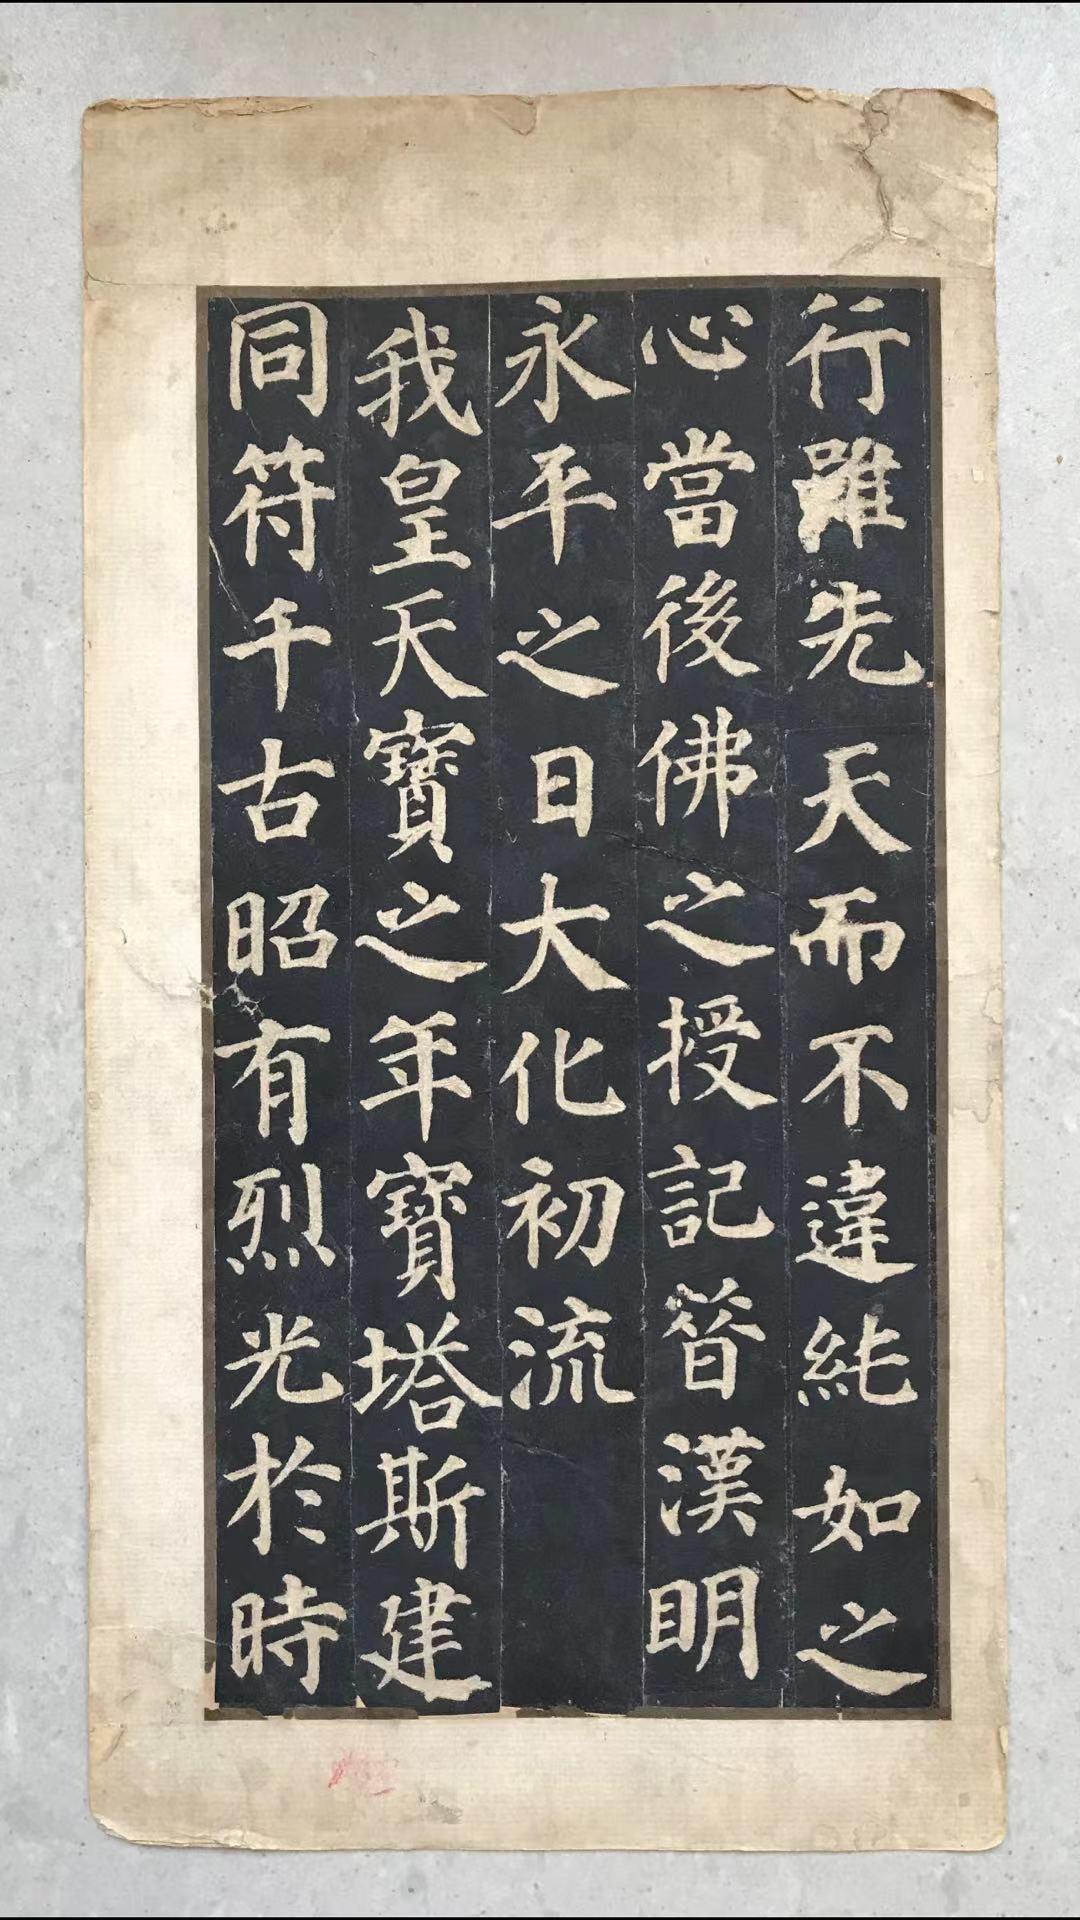 行雖先天而不違純如之
心當後佛之授記昔漢明
永平之日大化初流
我皇天寶之年寶塔斯建
同符千古昭有烈光於時